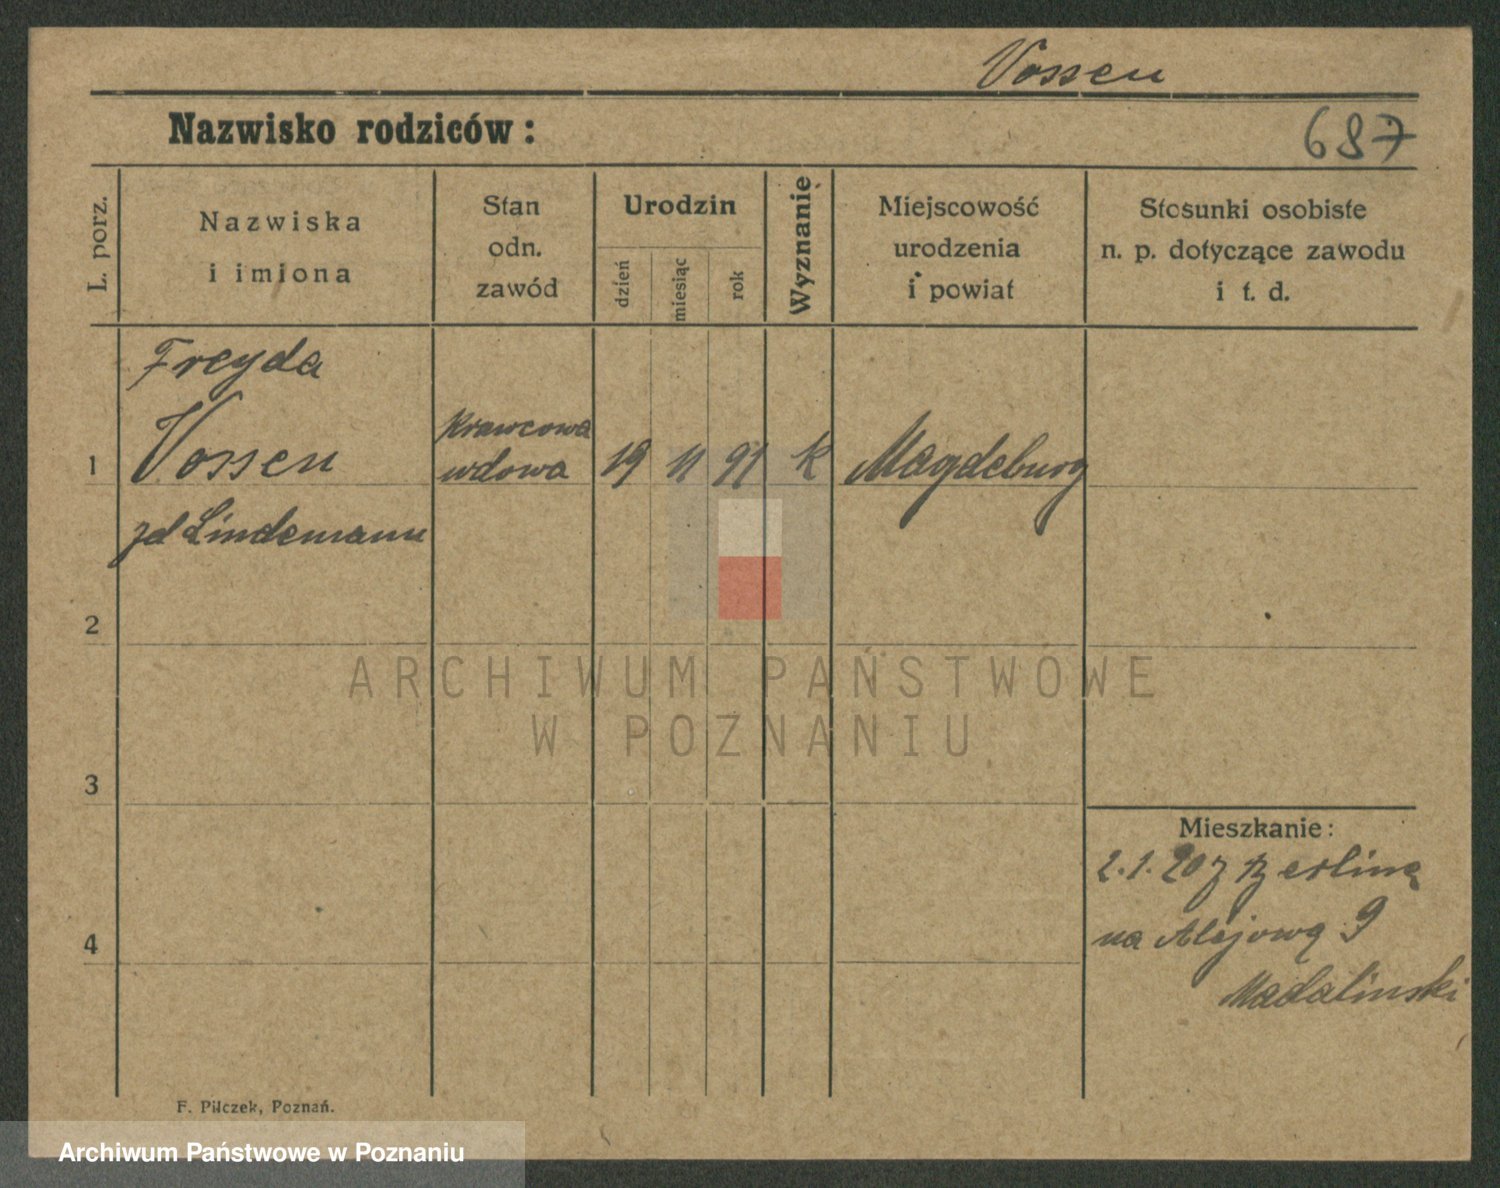 Vossen
Nazwisko rodziców:
687
L. porz.
Nazwiska
i imiona
Stan
odn.
zawód
Urodzin
dzień
miesiąc
rok
Wyznanie
Miejscowość
urodzenia
i powiat
Stosunki osobiste
n. p. dotyczące zawodu
i t. d.
Freyda
1 Vossen
krawcowa
wdowa
19 11 91 k Magdeburg
zd Lindemann
2
3
4
Mieszkanie:
2.1.20 z Berlina
na Alejową 9
Madalinski
F. Pilczek, Poznań.
ARCHIWUM PAŃSTWOWE
W POZNANIU
Archiwum Państwowe w Poznaniu